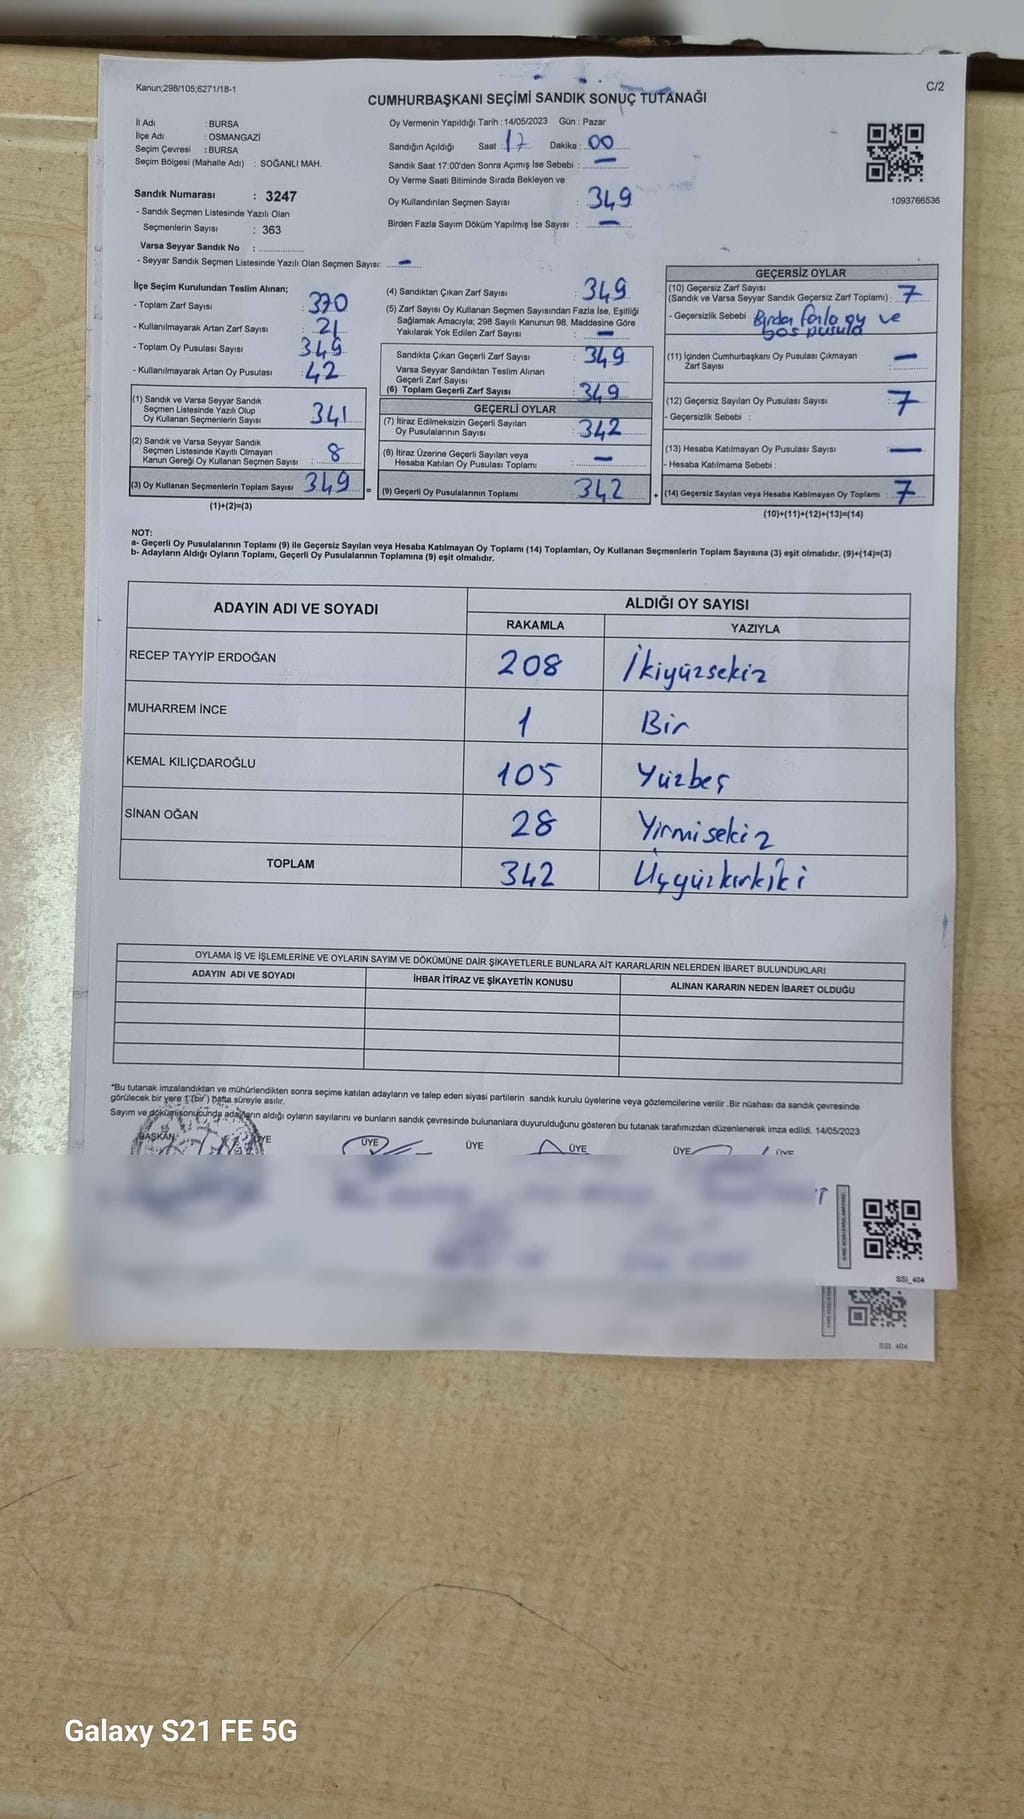 Kanun;298/105;6271/18-1
C/2
CUMHURBAŞKANI SEÇİMİ SANDIK SONUÇ TUTANAĞI
İl Adı : BURSA
İlçe Adı : OSMANGAZİ
Seçim Çevresi : BURSA
Seçim Bölgesi (Mahalle Adı) : SOĞANLI MAH.
Sandık Numarası : 3247
- Sandık Seçmen Listesinde Yazılı Olan
Seçmenlerin Sayısı : 363
Varsa Seyyar Sandık No : ................
- Seyyar Sandık Seçmen Listesinde Yazılı Olan Seçmen Sayısı: —
Oy Vermenin Yapıldığı Tarih : 14/05/2023 Gün : Pazar
Sandığın Açıldığı Saat : 17 Dakika : 00
Sandık Saat 17:00'den Sonra Açımış İse Sebebi : —
Oy Verme Saati Bitiminde Sırada Bekleyen ve
Oy Kullandırılan Seçmen Sayısı : 349
Birden Fazla Sayım Döküm Yapılmış İse Sayısı : —
1093766536
İlçe Seçim Kurulundan Teslim Alınan;
- Toplam Zarf Sayısı : 370
- Kullanılmayarak Artan Zarf Sayısı : 21
- Toplam Oy Pusulası Sayısı : 349
- Kullanılmayarak Artan Oy Pusulası : 42
(1) Sandık ve Varsa Seyyar Sandık
Seçmen Listesinde Yazılı Olup
Oy Kullanan Seçmenlerin Sayısı : 341
(2) Sandık ve Varsa Seyyar Sandık
Seçmen Listesinde Kayıtlı Olmayan
Kanun Gereği Oy Kullanan Seçmen Sayısı : 8
(3) Oy Kullanan Seçmenlerin Toplam Sayısı : 349 =
(1)+(2)=(3)
(4) Sandıktan Çıkan Zarf Sayısı : 349
(5) Zarf Sayısı Oy Kullanan Seçmen Sayısından Fazla İse, Eşitliği
Sağlamak Amacıyla; 298 Sayılı Kanunun 98. Maddesine Göre
Yakılarak Yok Edilen Zarf Sayısı : —
Sandıkta Çıkan Geçerli Zarf Sayısı : 349
Varsa Seyyar Sandıktan Teslim Alınan
Geçerli Zarf Sayısı
(6) Toplam Geçerli Zarf Sayısı : 349
GEÇERLİ OYLAR
(7) İtiraz Edilmeksizin Geçerli Sayılan
Oy Pusulalarının Sayısı : 342
(8) İtiraz Üzerine Geçerli Sayılan veya
Hesaba Katılan Oy Pusulası Toplamı : —
(9) Geçerli Oy Pusulalarının Toplamı : 342 +
GEÇERSİZ OYLAR
(10) Geçersiz Zarf Sayısı
(Sandık ve Varsa Seyyar Sandık Geçersiz Zarf Toplamı) : 7
- Geçersizlik Sebebi : Birden fazla oy ve
boş pusula
(11) İçinden Cumhurbaşkanı Oy Pusulası Çıkmayan
Zarf Sayısı : —
(12) Geçersiz Sayılan Oy Pusulası Sayısı : 7
- Geçersizlik Sebebi :
(13) Hesaba Katılmayan Oy Pusulası Sayısı : —
- Hesaba Katılmama Sebebi :
(14) Geçersiz Sayılan veya Hesaba Katılmayan Oy Toplamı : 7
(10)+(11)+(12)+(13)=(14)
NOT:
a- Geçerli Oy Pusulalarının Toplamı (9) ile Geçersiz Sayılan veya Hesaba Katılmayan Oy Toplamı (14) Toplamları, Oy Kullanan Seçmenlerin Toplam Sayısına (3) eşit olmalıdır. (9)+(14)=(3)
b- Adayların Aldığı Oyların Toplamı, Geçerli Oy Pusulalarının Toplamına (9) eşit olmalıdır.
ADAYIN ADI VE SOYADI ALDIĞI OY SAYISI
RAKAMLA YAZIYLA
RECEP TAYYİP ERDOĞAN 208 İkiyüzsekiz
MUHARREM İNCE 1 Bir
KEMAL KILIÇDAROĞLU 105 Yüzbeş
SİNAN OĞAN 28 Yirmisekiz
TOPLAM 342 Üçyüzkırkiki
OYLAMA İŞ VE İŞLEMLERİNE VE OYLARIN SAYIM VE DÖKÜMÜNE DAİR ŞİKAYETLERLE BUNLARA AİT KARARLARIN NELERDEN İBARET BULUNDUKLARI
ADAYIN ADI VE SOYADI İHBAR İTİRAZ VE ŞİKAYETİN KONUSU ALINAN KARARIN NEDEN İBARET OLDUĞU
*Bu tutanak imzalandıktan ve mühürlendikten sonra seçime katılan adayların ve talep eden siyasi partilerin sandık kurulu üyelerine veya gözlemcilerine verilir .Bir nüshası da sandık çevresinde
görülecek bir yere 1 (bir) hafta süreyle asılır.
Sayım ve dökümü sonucunda adayların aldığı oyların sayılarını ve bunların sandık çevresinde bulunanlara duyurulduğunu gösteren bu tutanak tarafımızdan düzenlenerek imza edildi. 14/05/2023
BAŞKAN ÜYE ÜYE ÜYE ÜYE ÜYE ÜYE
SS1_404
SS1_404
Galaxy S21 FE 5G